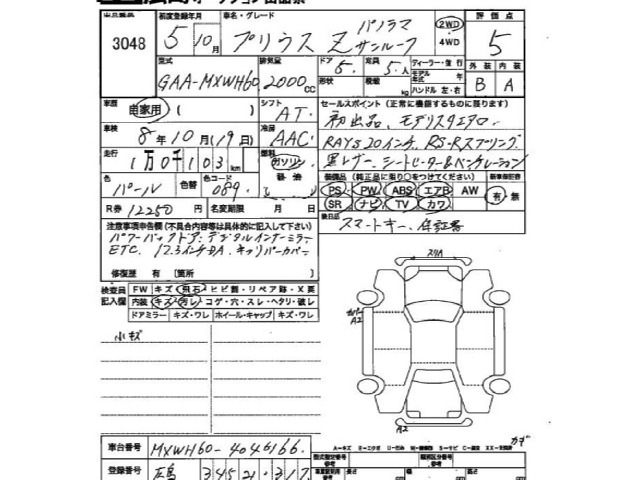 出品番号 初度登録年月 車名・グレード 評価点
3048 5年10月 プリウス Z パノラマサンルーフ 2WD ・4WD 5
型式 排気量 ドア 定員 ディーラー・並行 外装 内装
GAA-MXWH60 2000cc 5 5人 形状 積載 kg モデル年式 ハンドル 左・右 B A
車歴 自家用 ( ) シフト AT セールスポイント(正常に機能するものに限ります)
車検 8年10月(19日) 冷房 AAC 初出品、モデリスタエアロ
RAYS20インチ、RS-Rスプリング
走行 1万0千103km 燃料 ガソリン 軽油 黒レザー、シートヒーター&ベンチレーション
色 色替 色コード 装備品(純正品に限り○をつけてください) 新車保証書
パール 089 PS PW ABS エアB AW 有・無
SR ナビ TV カワ
R券 12250円 名変期限 月 日 後日品 スマートキー、保証書
注意事項申告欄(不具合内容等は具体的に記入して下さい)
パワーバックドア、デジタルインナーミラー
ETC、12.3インチDA、キャリパーカバー
修復歴 有 [箇所 ]
検査員記入欄 FW キズ・飛石・ヒビ割・リペア跡・X要
内装 キズ・汚れ・コゲ・穴・スレ・ヘタリ・破レ
ドアミラー キズ・ワレ ホイール・キャップ キズ・ワレ
小キズ
スリA
カバーA2
A2
カギ
車台番号 MXWH60-4046166
登録番号 345 21-317